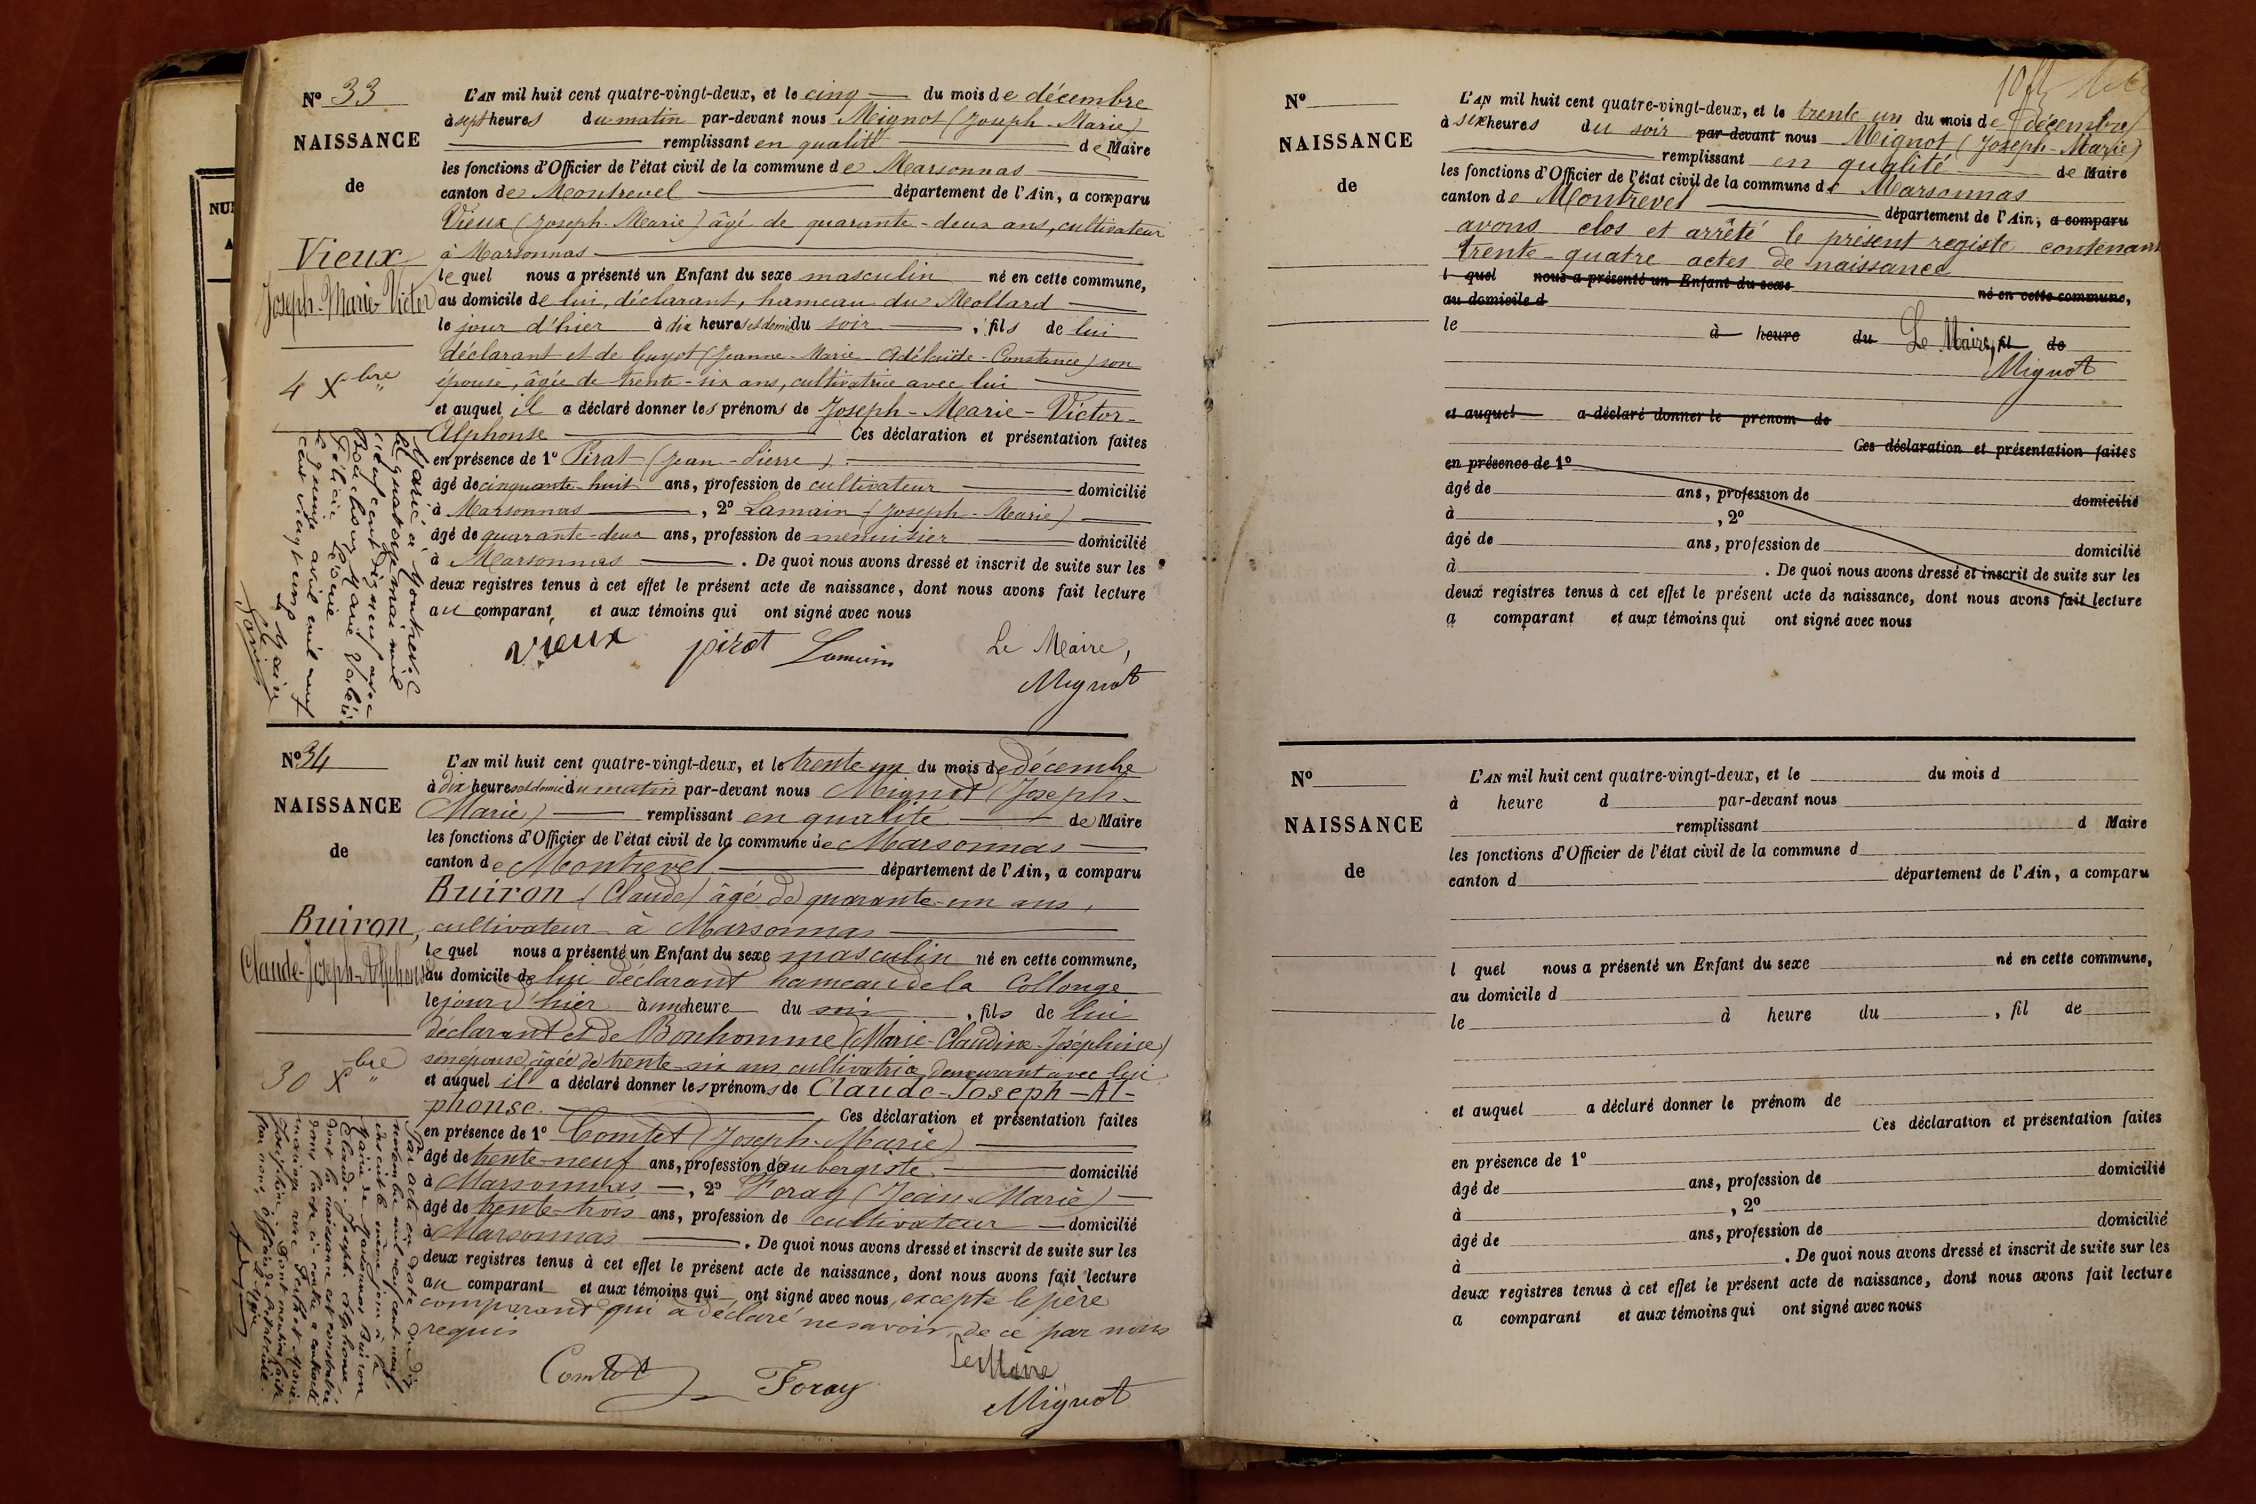 N° 33
NAISSANCE
de
Vieux
Joseph-Marie-Victor
4 Xbre
L'AN mil huit cent quatre-vingt-deux, et le cinq du mois de décembre
à sept heures du matin par-devant nous Mignot (Joseph-Marie)
remplissant en qualité de Maire
les fonctions d'Officier de l'état civil de la commune de Marsonnas
canton de Montrevel département de l'Ain, a comparu
Vieux (Joseph-Marie) âgé de quarante-deux ans, cultivateur
à Marsonnas
lequel nous a présenté un Enfant du sexe masculin né en cette commune,
au domicile de lui, déclarant, hameau du Mollard
le jour d'hier à dix heures et demi du soir, fils de lui
déclarant et de Guyot (Jeanne-Marie-Adélaïde-Constance) son
épouse, âgée de trente-six ans, cultivatrice avec lui
et auquel il a déclaré donner les prénoms de Joseph-Marie-Victor-
Alphonse Ces déclaration et présentation faites
en présence de 1° Pirat (Jean-Pierre)
âgé de cinquante-huit ans, profession de cultivateur domicilié
à Marsonnas, 2° Lamain (Joseph-Marie)
âgé de quarante-deux ans, profession de menuisier domicilié
à Marsonnas. De quoi nous avons dressé et inscrit de suite sur les
deux registres tenus à cet effet le présent acte de naissance, dont nous avons fait lecture
au comparant et aux témoins qui ont signé avec nous
Vieux pirat Lamain Le Maire,
Mignot
Marié à Montrevel
le quatorze mai mil
neuf cent dix neuf avec
Marie
Félicie
le quinze avril mil neuf
cent vingt cinq
Le Maire
N° 34
NAISSANCE
de
Buiron,
Claude-Joseph-Alphonse
30 Xbre
L'AN mil huit cent quatre-vingt-deux, et le trente un du mois de décembre
à dix heures et demie du matin par-devant nous Mignot (Joseph-
Marie) remplissant en qualité de Maire
les fonctions d'Officier de l'état civil de la commune de Marsonnas
canton de Montrevel département de l'Ain, a comparu
Buiron (Claude) âgé de quarante-un ans,
cultivateur à Marsonnas
lequel nous a présenté un Enfant du sexe masculin né en cette commune,
au domicile de lui déclarant hameau de la Collonge
le jour d'hier à une heure du soir, fils de lui
déclarant et de Bonhomme (Marie-Claudine-Joséphine)
son épouse, âgée de trente-six ans cultivatrice demeurant avec lui
et auquel il a déclaré donner les prénoms de Claude-Joseph-Al-
phonse. Ces déclaration et présentation faites
en présence de 1° Comtet (Joseph-Marie)
âgé de trente-neuf ans, profession d'aubergiste domicilié
à Marsonnas, 2° Foray (Jean-Marie)
âgé de trente-trois ans, profession de cultivateur domicilié
à Marsonnas. De quoi nous avons dressé et inscrit de suite sur les
deux registres tenus à cet effet le présent acte de naissance, dont nous avons fait lecture
au comparant et aux témoins qui ont signé avec nous, excepté le père
comparant qui a déclaré ne savoir, de ce par nous
requis
Comtet Foray Le Maire
Mignot
Par acte en date du dix
novembre mil neuf cent neuf,
inscrit le même jour à la
Mairie de Marsonnas Buiron
Claude-Joseph-Alphonse,
dont la naissance est constatée
dans l'acte ci-contre a contracté
mariage avec Marie-
Joséphine. Dont mention faite
par nous, officier de l'état civil.
Le Maire
N°
NAISSANCE
de
L'AN mil huit cent quatre-vingt-deux, et le trente un du mois de décembre
à six heures du soir par-devant nous Mignot (Joseph-Marie)
remplissant en qualité de Maire
les fonctions d'Officier de l'état civil de la commune de Marsonnas
canton de Montrevel département de l'Ain, a comparu
avons clos et arrêté le présent registe contenant
trente-quatre actes de naissance
l quel nous a présenté un Enfant du sexe né en cette commune,
au domicile d
le à heure du Le Maire, fil de
Mignot
et auquel a déclaré donner le prenom de
Ces déclaration et présentation faites
en présence de 1°
âgé de ans, profession de domicilié
à , 2°
âgé de ans, profession de domicilié
à . De quoi nous avons dressé et inscrit de suite sur les
deux registres tenus à cet effet le présent acte de naissance, dont nous avons fait lecture
a comparant et aux témoins qui ont signé avec nous
N°
NAISSANCE
de
L'AN mil huit cent quatre-vingt-deux, et le du mois d
à heure d par-devant nous
remplissant d Maire
les fonctions d'Officier de l'état civil de la commune d
canton d département de l'Ain, a comparu
l quel nous a présenté un Enfant du sexe né en cette commune,
au domicile d
le à heure du , fil de
et auquel a déclaré donner le prénom de
Ces déclaration et présentation faites
en présence de 1°
âgé de ans, profession de domicilié
à , 2°
âgé de ans, profession de domicilié
à . De quoi nous avons dressé et inscrit de suite sur les
deux registres tenus à cet effet le présent acte de naissance, dont nous avons fait lecture
a comparant et aux témoins qui ont signé avec nous